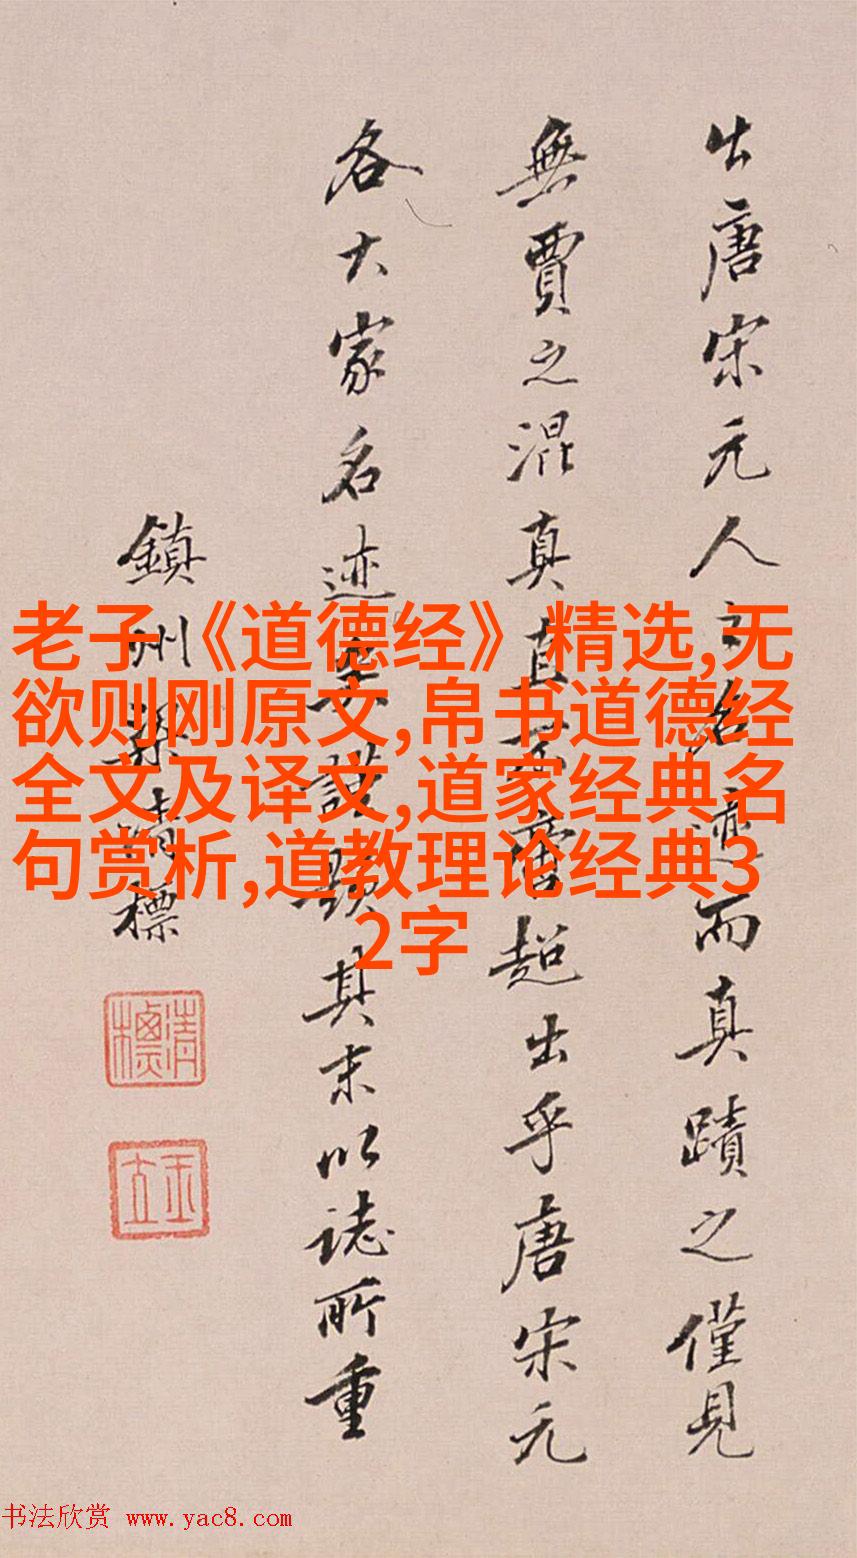 出唐宋元人之名迹而真蹟之僅見
無賈之混真直可齊超出乎唐宋元
各大家名迹矣謹題其末以誌所重
鎮州梁清標
清標
玉立
老子《道德经》精选,无
欲则刚原文,帛书道德经
全文及译文,道家经典名
句赏析,道教理论经典3
2字
书法欣赏 www.yac8.com